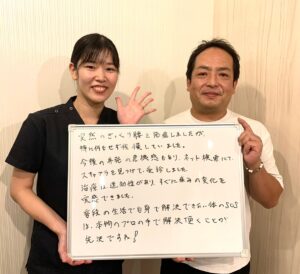 突然のぎっくり腰を発症しましたが、
特に何もせず我慢していました。
今後の本能の危機感もあり、ネット検索にて、
スカイプラを見つけて受診しました。
治療は速効性があり、すぐに痛みの変化を
実感できました。
普段の生活で自身で解決できない体のSOS
は、本物のプロの手で解決頂くことが
先決ですね！